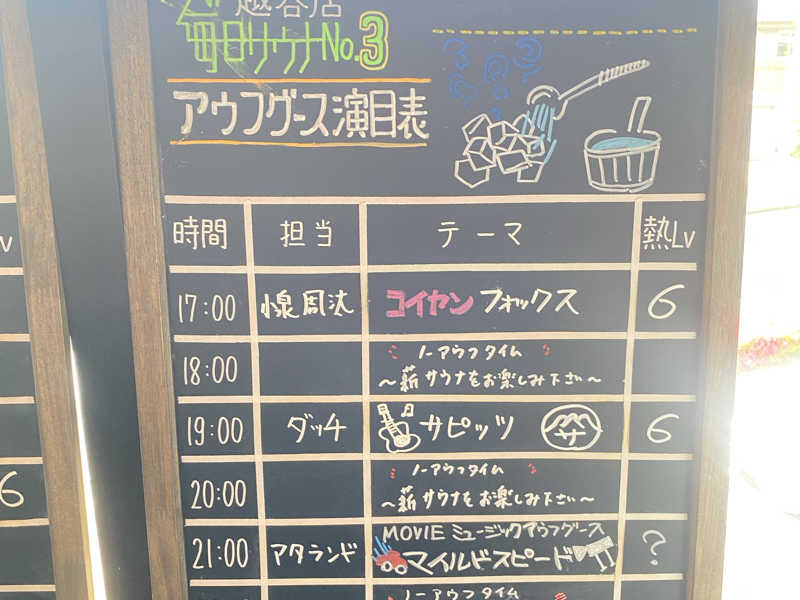 越谷店
毎日サウナNo.3
アウフグース演目表
時間 担当 テーマ 熱Lv
17:00 コイヤンフォックス 6
18:00 ノーアウフタイム
～薪サウナをお楽しみ下さい～
19:00 ダッチ サピッツ サ 6
20:00 ノーアウフタイム
～薪サウナをお楽しみ下さい～
21:00 アタランド MOVIE ミュージックアウフグース
マイルドスピード ?
ノーアウフタイム
v
6